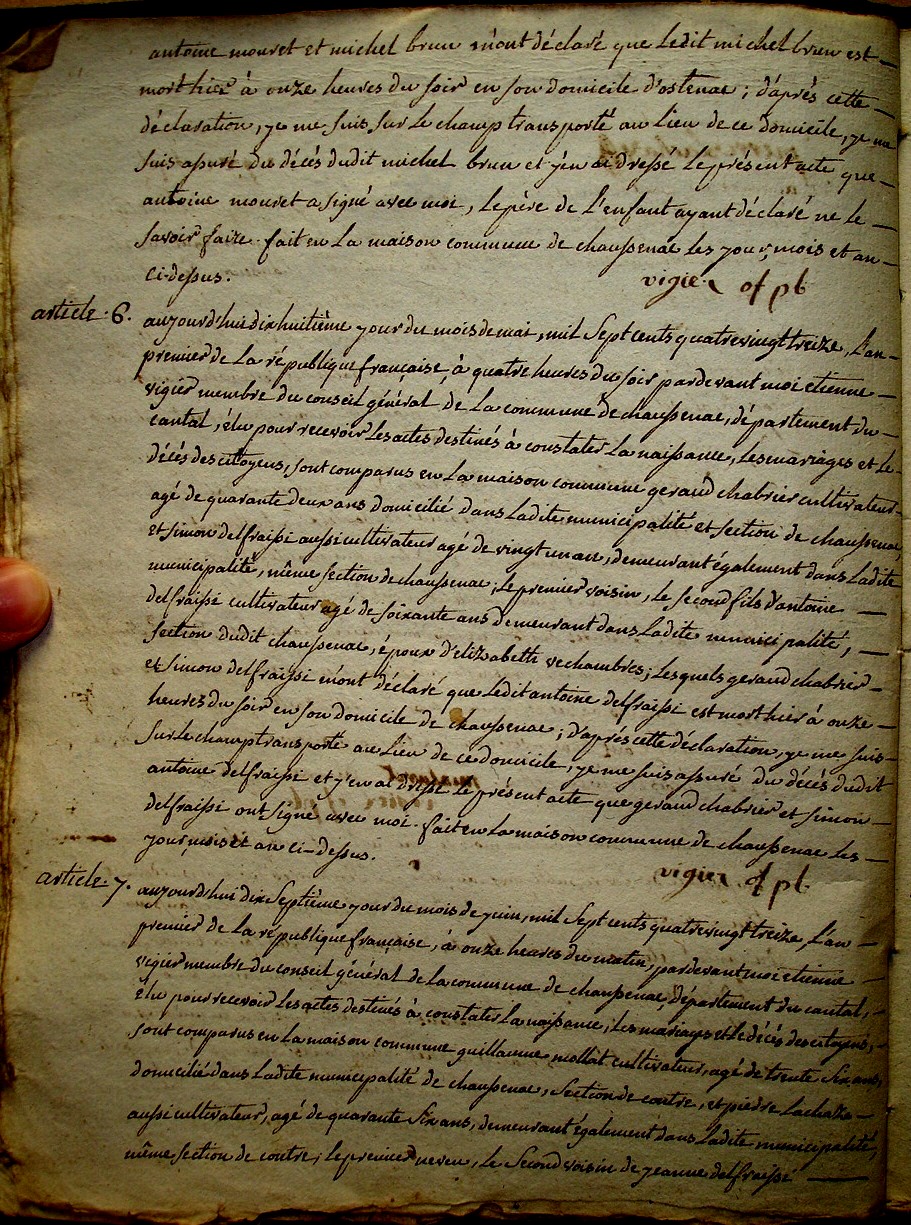 antoine mouret et michel brun m'ont déclaré que ledit michel brun est
mort hier à onze heures du soir en son domicile d'ostenac ; d'après cette
déclaration, je me suis sur le champ transporté au lieu de ce domicile, je me
suis assuré du décès dudit michel brun et j'en ai dressé le présent acte que
antoine mouret a signé avec moi, le père de l'enfant ayant déclaré ne le
savoir faire. fait en la maison commune de chaussenac les jour, mois et an
ci-dessus.
vigier of pb
article. 6.
aujourd'hui dix huitième jour du mois de mai, mil sept cents quatre vingt treize, l'an
premier de la république française, à quatre heures du soir par devant moi etienne
vigier membre du conseil général de la commune de chaussenac, département du
cantal, élu pour recevoir les actes destinés à constater la naissance, les mariages et le
décès des citoyens, sont comparus en la maison commune geraud chabrier cultivateur
agé de quarante deux ans domicilié dans ladite municipalité et section de chaussenac,
et simon delfraissi aussi cultivateur agé de vingt un an, demeurant également dans ladite
municipalité, même section de chaussenac ; le premier voisin, le second fils d'antoine
delfraissi cultivateur agé de soixante ans demeurant dans ladite municipalité,
section dudit chaussenac, époux d'elizabeth vechambres ; lesquels geraud chabrier
et simon delfraissi m'ont déclaré que ledit antoine delfraissi est mort hier à onze
heures du soir en son domicile de chaussenac ; d'après cette déclaration, je me suis
sur le champ transporté au lieu de ce domicile, je me suis assuré du décès dudit
antoine delfraissi et j'en ai dressé le présent acte que geraud chabrier et simon
delfraissi ont signé avec moi. fait en la maison commune de chaussenac les
jour, mois et an ci-dessus.
vigier of pb
article 7.
aujourd'hui dix septième jour du mois de juin, mil sept cents quatre vingt treize, l'an
premier de la république française, à onze heures du matin, par devant moi etienne
vigier membre du conseil général de la commune de chaussenac, département du cantal,
élu pour recevoir les actes destinés à constater la naissance, les mariages et le décès des citoyens,
sont comparus en la maison commune guillaume mollat cultivateur, agé de trente six ans,
domicilié dans ladite municipalité de chaussenac, section de contre, et pierre lachaze
aussi cultivateur, agé de quarante six ans, demeurant également dans ladite municipalité,
même section de contre ; le premier neveu, le second voisin de jeanne delfraissi